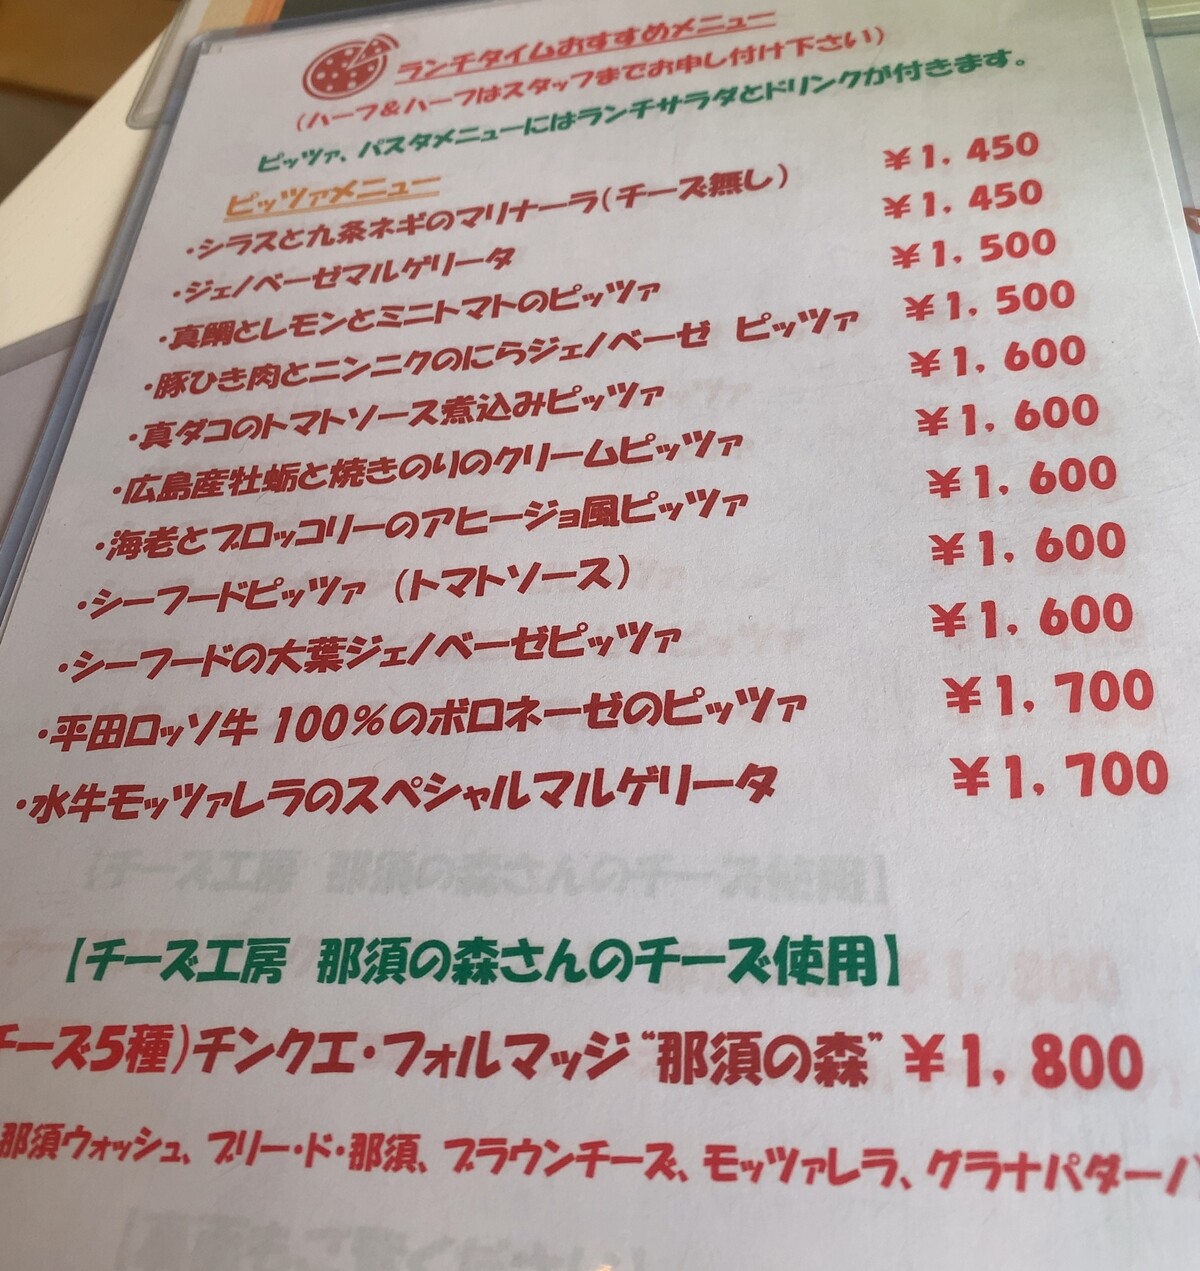 ランチタイムおすすめメニュー
(ハーフ&ハーフはスタッフまでお申し付け下さい)
ピッツァ、パスタメニューにはランチサラダとドリンクが付きます。
ピッツァメニュー
・シラスと九条ネギのマリナーラ(チーズ無し) ¥1,450
・ジェノベーゼマルゲリータ ¥1,450
・真鯛とレモンとミニトマトのピッツァ ¥1,500
・豚ひき肉とニンニクのにらジェノベーゼ ピッツァ ¥1,500
・真ダコのトマトソース煮込みピッツァ ¥1,600
・広島産牡蛎と焼きのりのクリームピッツァ ¥1,600
・海老とブロッコリーのアヒージョ風ピッツァ ¥1,600
・シーフードピッツァ (トマトソース) ¥1,600
・シーフードの大葉ジェノベーゼピッツァ ¥1,600
・平田ロッソ牛100%のボロネーゼのピッツァ ¥1,700
・水牛モッツァレラのスペシャルマルゲリータ ¥1,700
【チーズ工房 那須の森さんのチーズ使用】
チーズ5種)チンクエ・フォルマッジ“那須の森” ¥1,800
那須ウォッシュ、ブリー・ド・那須、ブラウンチーズ、モッツァレラ、グラナパダーノ